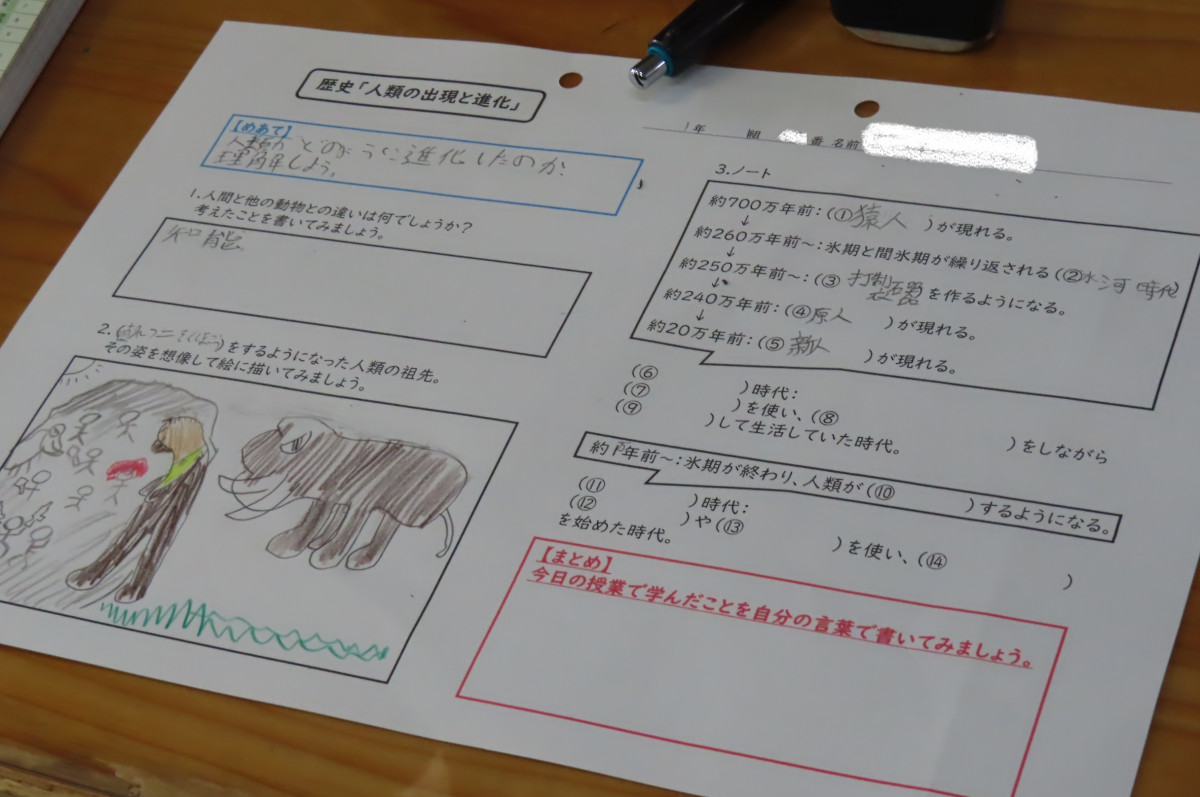 歴史「人類の出現と進化」
【めあて】
人類がどのように進化したのか
理解しよう。
1.人間と他の動物との違いは何でしょうか？
考えたことを書いてみましょう。
知能
2.(直立二足歩行)をするようになった人類の祖先。
その姿を想像して絵に描いてみましょう。
1年 組 番 名前
3.ノート
約700万年前：(①猿人 )が現れる。
↓
約260万年前～：氷期と間氷期が繰り返される(②氷河時代)
↓
約250万年前～：(③ 打製石器 を作るようになる。
↓
約240万年前：(④原人 )が現れる。
↓
約20万年前：(⑤ 新人 )が現れる。
(⑥ )時代：
(⑦ )を使い、(⑧ )をしながら
(⑨ )して生活していた時代。
約1万年前～：氷期が終わり、人類が(⑩ )するようになる。
(⑪ )時代：
(⑫ )や(⑬ )を使い、(⑭ )
を始めた時代。
【まとめ】
今日の授業で学んだことを自分の言葉で書いてみましょう。